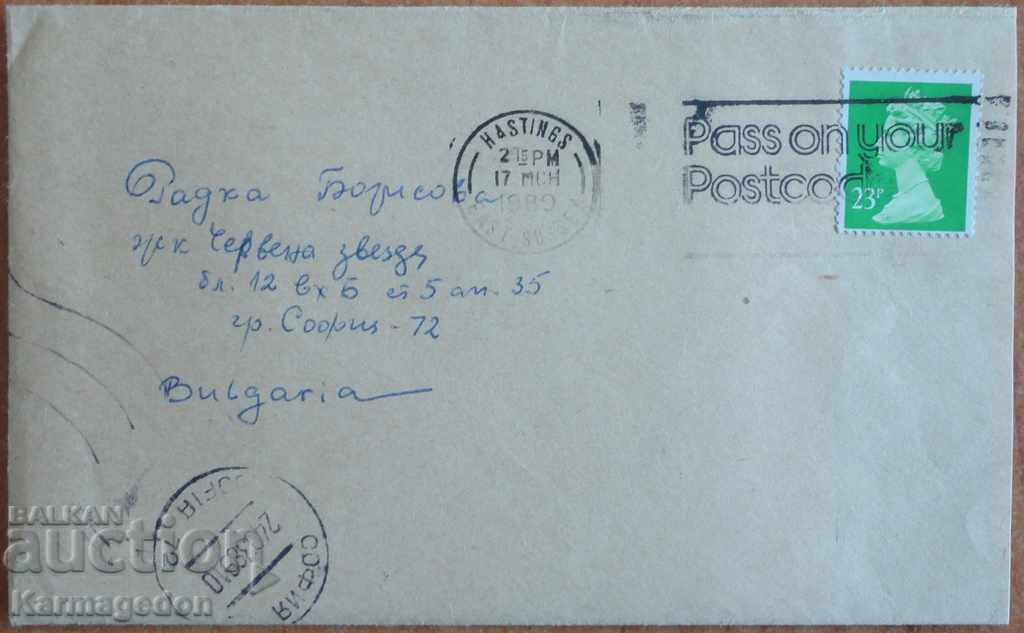 HASTINGS
2 15 PM
17 MCH
1989
EAST SUSSEX
Pass on your
Postcod
23P
Радка Борисова
жк Червена звезда
бл. 12 вх Б ет 5 ап. 35
гр. София - 72
Bulgaria
SOFIA
СОФИЯ
BALKAN
auction
Karmagedon